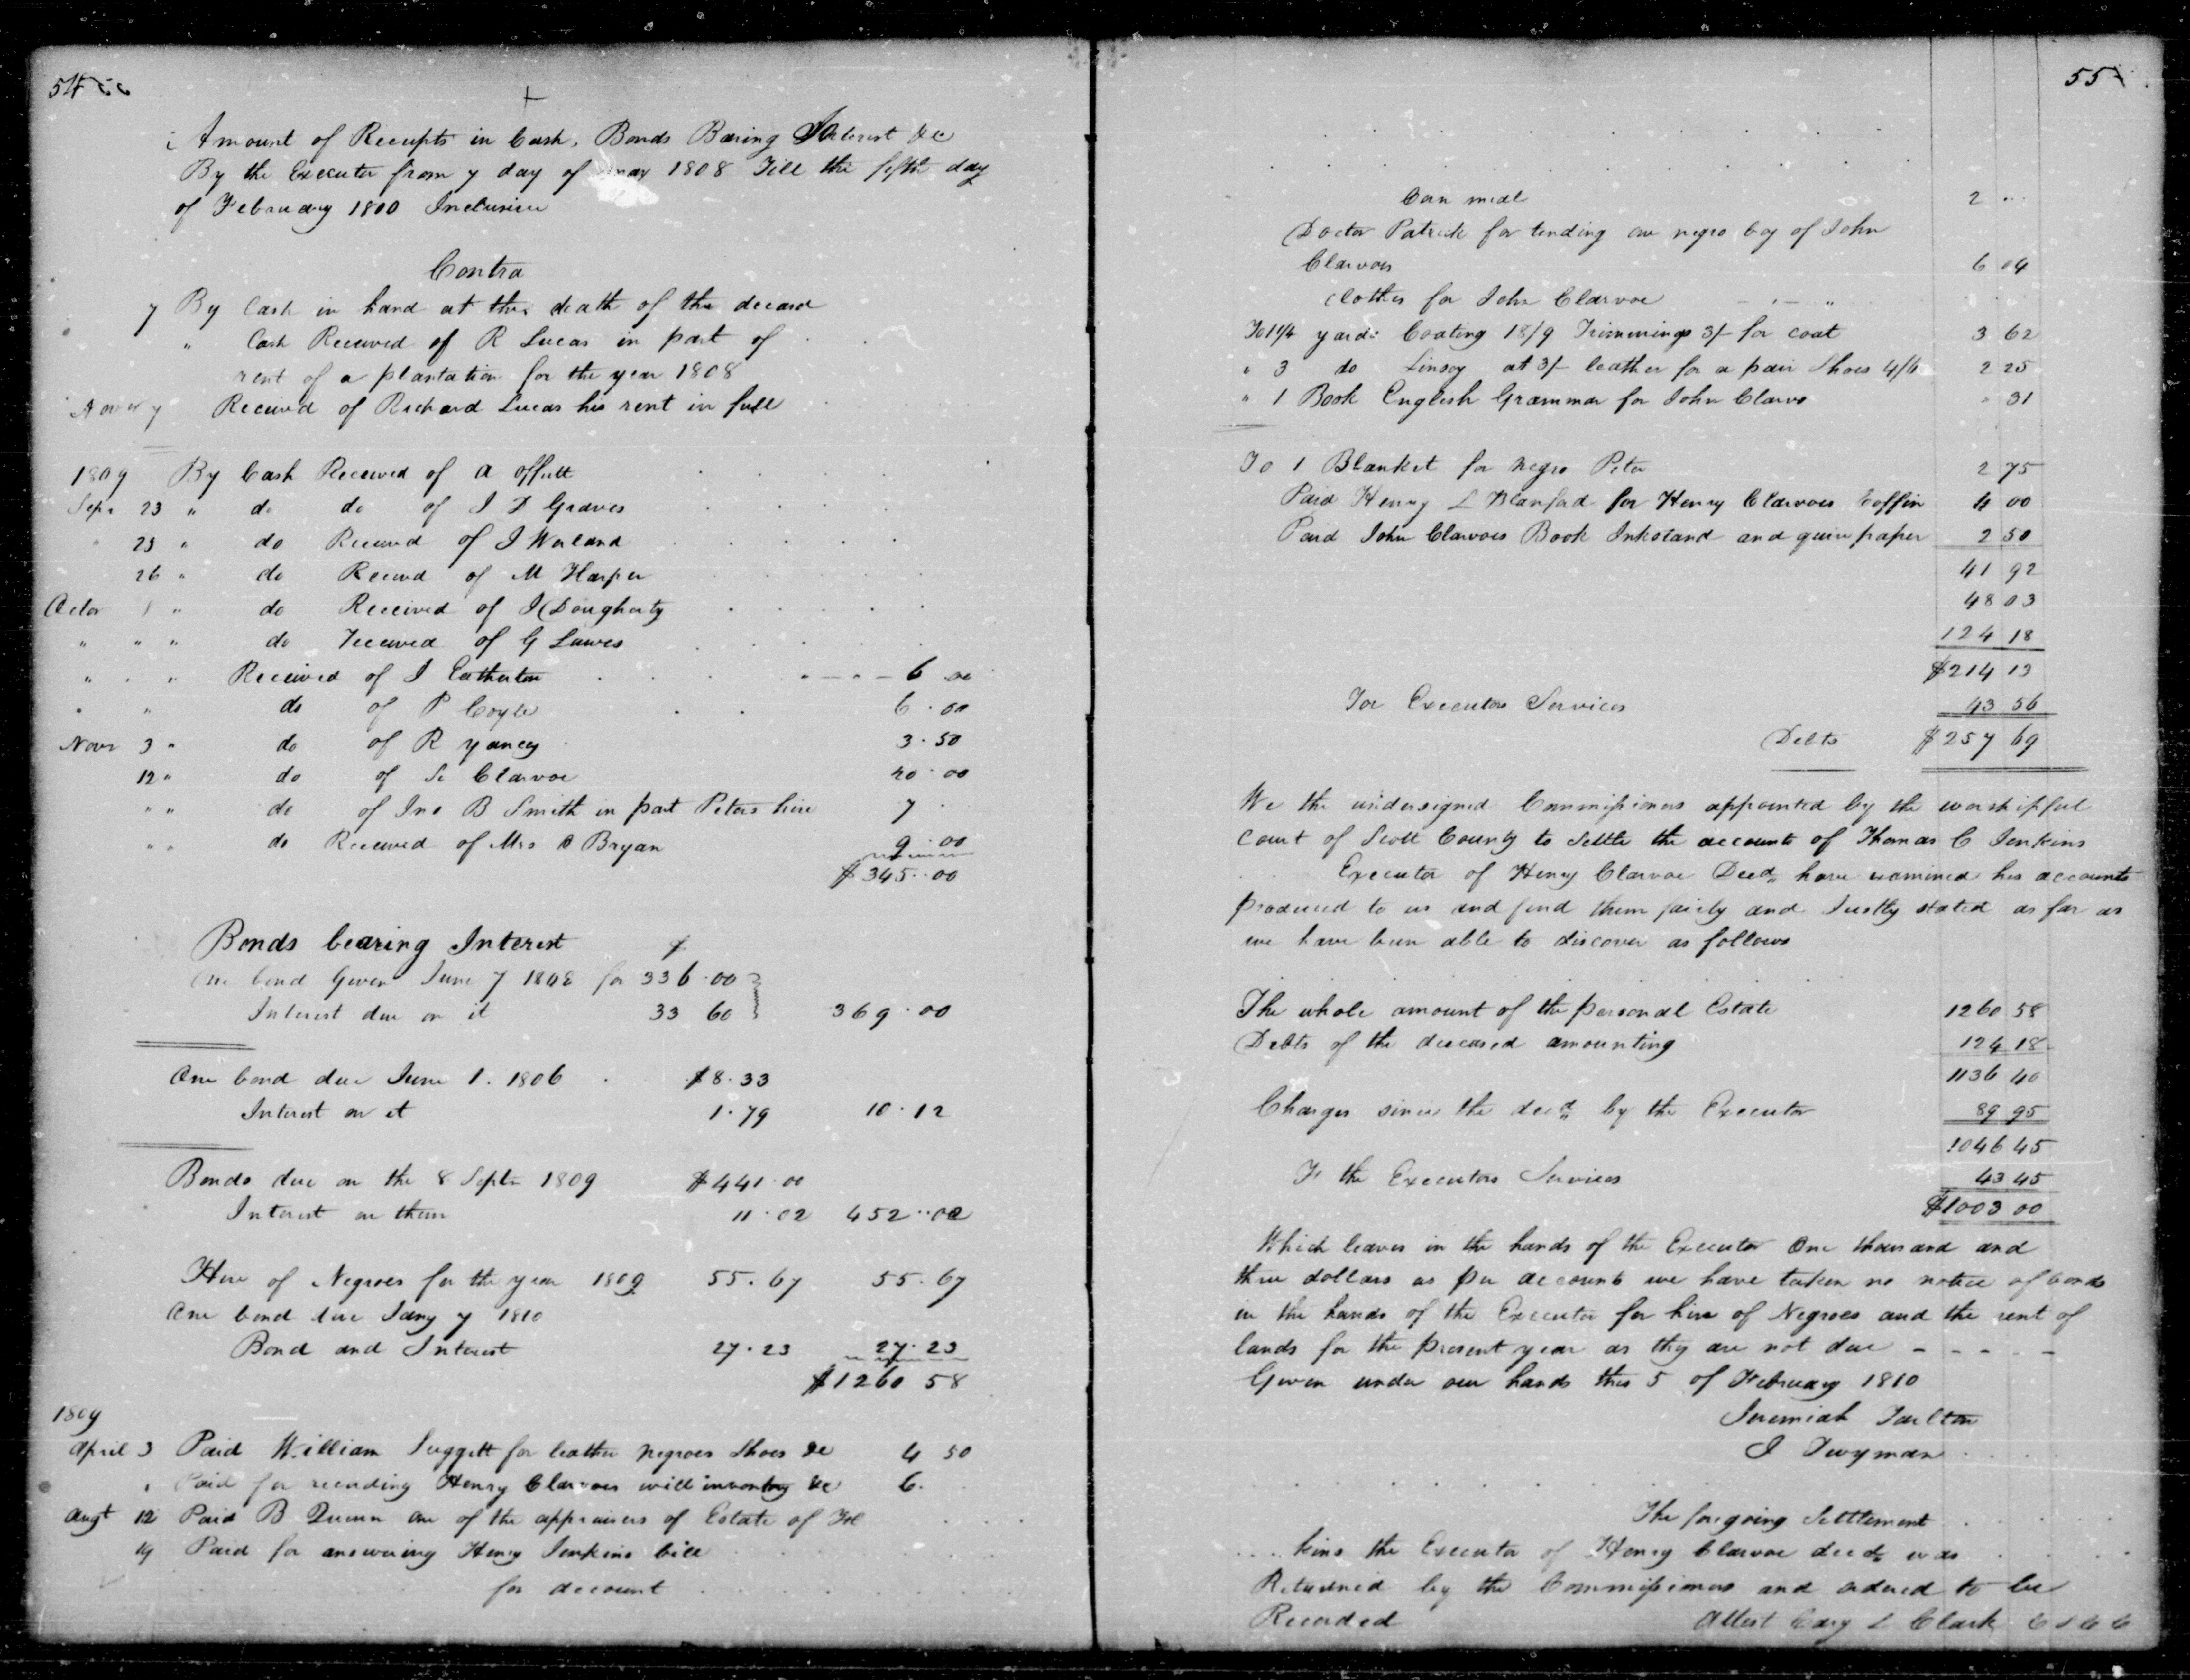 54
Amount of Receipts in Cash, Bonds Baring Interest &c
By the Executor from 7 day of may 1808 Till the fifth day
of February 1800 Inclusive
Contra
7 By Cash in hand at the death of the deceasd
" Cash Received of R Lucas in part of
rent of a plantation for the year 1808
Novr 7 Received of Richard Lucas his rent in full
1809 By Cash Received of A offutt
Sepr 23 " do do of I D Graves
" 25 " do Received of I Worland
26 " do Received of M Harper
Octor 1 " do Received of I Dougherty
" " " do received of G Lawes
" " " Received of I Eatherton 6 .00
" " do of P Coyle 6.00
Novr 3 " do of R yancy 3.50
12 " do of Clarvoe 20.00
" " do of Jno B Smith in part Peters hire 7
" " do Received of Mrs Bryan 9.00
$345..00
Bonds bearing Interest
One bond Given June 7 1808 for 336.00
Interest due on it 33 60 369.00
One bond due June 1. 1806 $8.33
Interest on it 1.79 10.12
Bonds due on the 8 Septr 1809 $441.00
Interest on them 11.02 452..02
Hire of Negroes for the year 1809 55.67 55.67
One bond due Jany 7 1810
Bond and Interest 27.23 27.23
$1260 58
1809
April 3 Paid William Suggett for leather negroes Shoes &c 4 50
" Paid for recording Henry Clarvoes will inventory &c 6.
Augt 12 Paid B Quinn one of the appraisers of Estate of
19 Paid for answering Henry Jenkins bill
for account
55
Corn meal 2 ..
Doctor Patrick for tending one negro boy of John
Clarvoes 6 04
clothes for John Clarvoe
To 1¼ yards Coating 18/9 Trimmings 3/- for coat 3 62
" 3 do Linsey at 3/- leather for a pair Shoes 4/6 2 25
" 1 Book English Grammar for John Clarvo " 31
To 1 Blanket for negro Peter 2 75
Paid Henry L Blanford for Henry Clarvoes Coffin 4 00
Paid John Clarvoes Book Inkstand and quire paper 2 50
41 92
48 03
124 18
$214 13
For Executors Services 43 56
Debts $257 69
We the undersigned Commissioners appointed by the worshipful
court of Scott County to Settle the accounts of Thomas C Jenkins
Executor of Henry Clarvoe Decd have examined his accounts
produced to us and find them fairly and Justly stated as far as
we have been able to discover as follows
The whole amount of the personal Estate 1260 58
Debts of the deceased amounting 124 18
1136 40
Charges since the decd by the Executor 89 95
1046 45
To the Executors Services 43 45
$1003 00
Which leaves in the hands of the Executor One thousand and
three dollars as per accounts we have taken no notice of bonds
in the hands of the Executor for hire of Negroes and the rent of
lands for the present year as they are not due - - - - -
Given under our hands this 5 of February 1810
Jeremiah Tarlton
J Twyman
The foregoing Settlement
....kins the Executor of Henry Clarvoe decd was
Returned by the Commissioners and ordered to be
Recorded Attest Cary L Clark